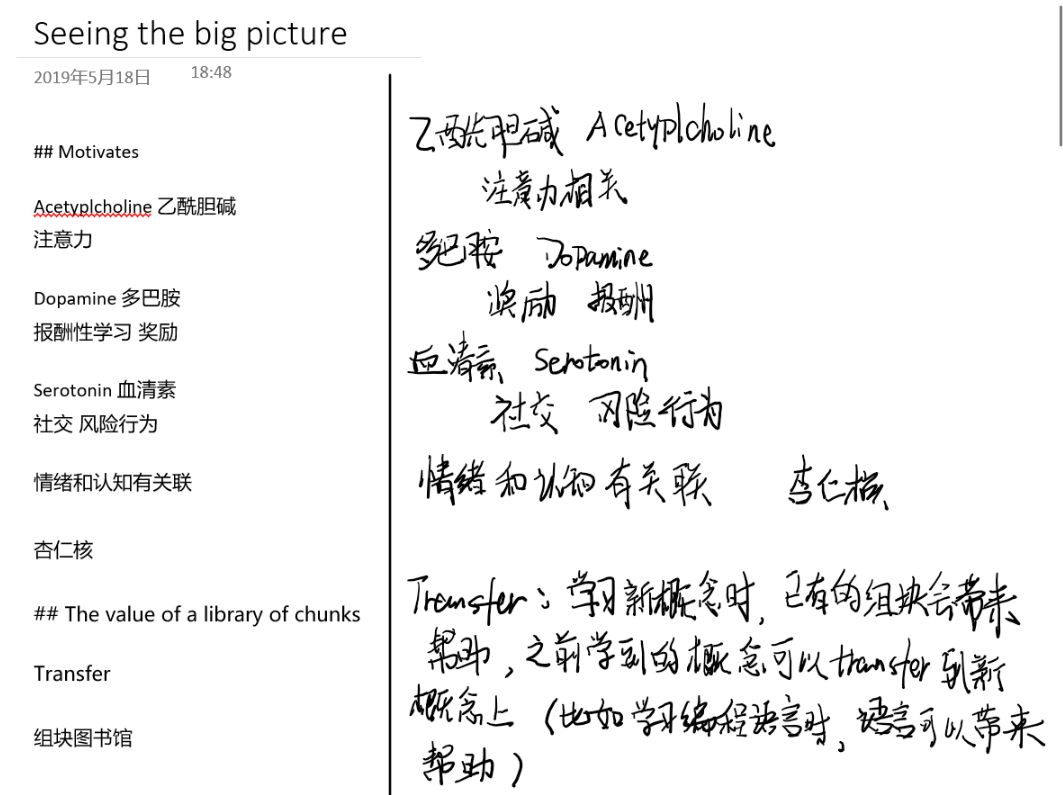 Seeing the big picture
2019年5月18日 18:48
## Motivates
Acetyplcholine 乙酰胆碱
注意力
Dopamine 多巴胺
报酬性学习 奖励
Serotonin 血清素
社交 风险行为
情绪和认知有关联
杏仁核
## The value of a library of chunks
Transfer
组块图书馆
乙酰胆碱 Acetyplcholine
注意力相关
多巴胺 Dopamine
奖励 报酬
血清素 Serotonin
社交 风险行为
情绪和认知有关联 杏仁核
Transfer: 学习新概念时, 已有的组块会带来
帮助, 之前学到的概念可以transfer到新
概念上 (比如学习编程语言时, 语言可以带来
帮助)